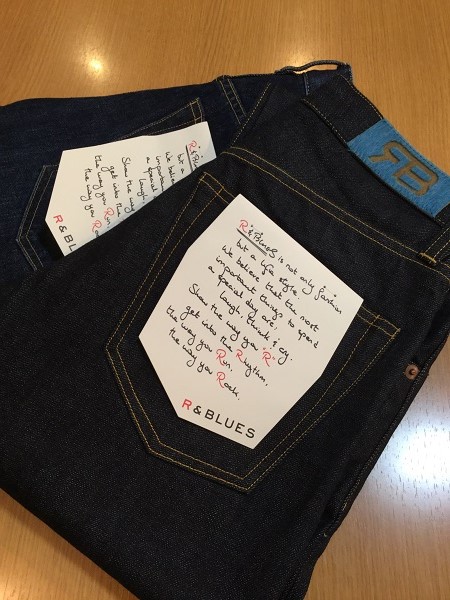 R&Blu
but a
We belie
importan
a special
laugh,
Show the wa
get into the
the way you Run
the way you R
R & BLUES
RB
R&Blues is not only fashion
but a life style.
We believe that the most
important things to spend
a special day are;
laugh, think & cry.
Show the way you "R"
get into the Rhythm,
the way you Run,
the way you Rock.
R & BLUES